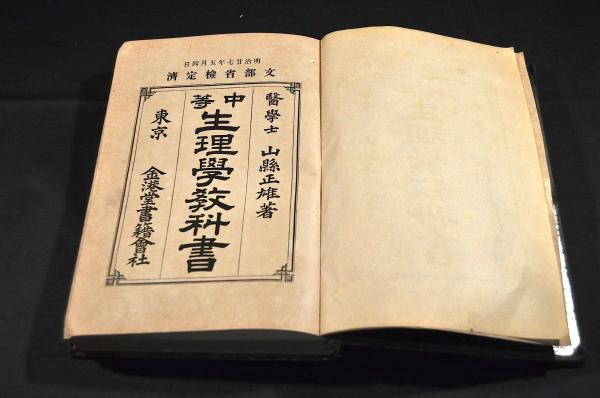 明治廿七年五月四日
文部省檢定濟
醫學士 山縣正雄著
中等
生理學教科書
東京 金港堂書籍會社